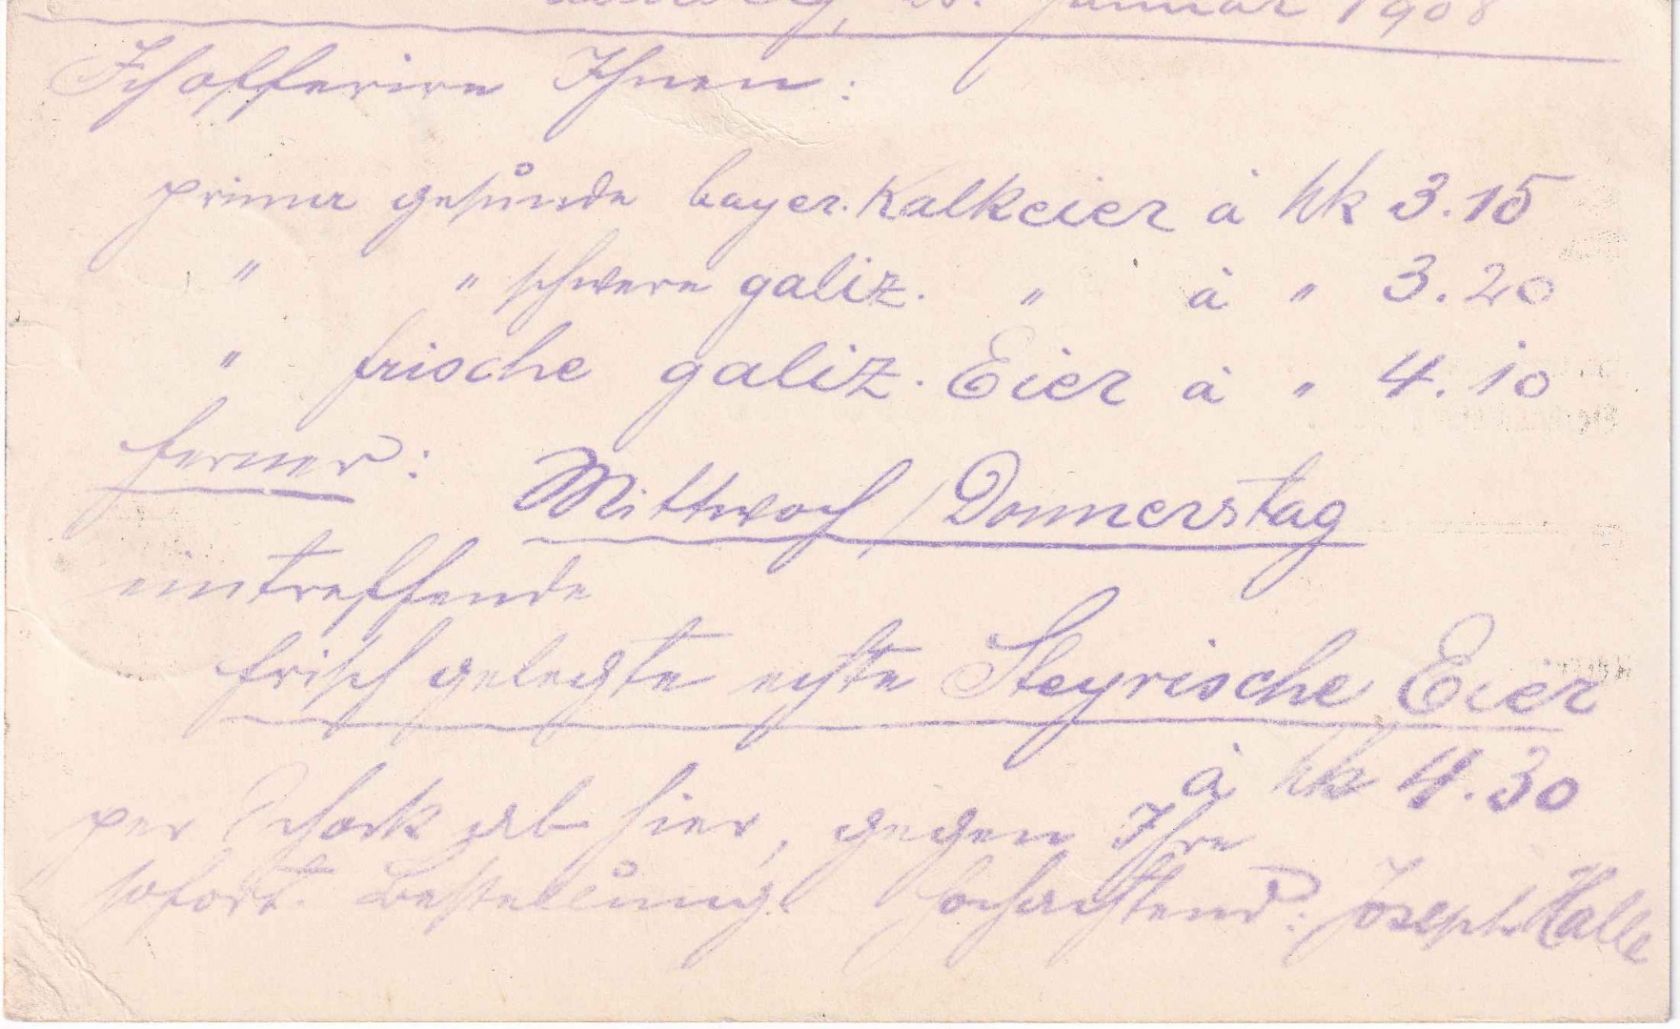 Januar 1908
Ich offerire Ihnen:
prima gesunde bayer. Kalkeier à Mk 3.15
" " schwere galiz. " à " 3.20
" frische galiz. Eier à " 4.10
ferner: Mittwoch / Donnerstag
eintreffende
frisch gelegte echte Steyrische Eier
à Mk 4.30
per Schock ab hier, gegen Ihre
sofort. Bestellung. Hochachtend: Joseph Halle